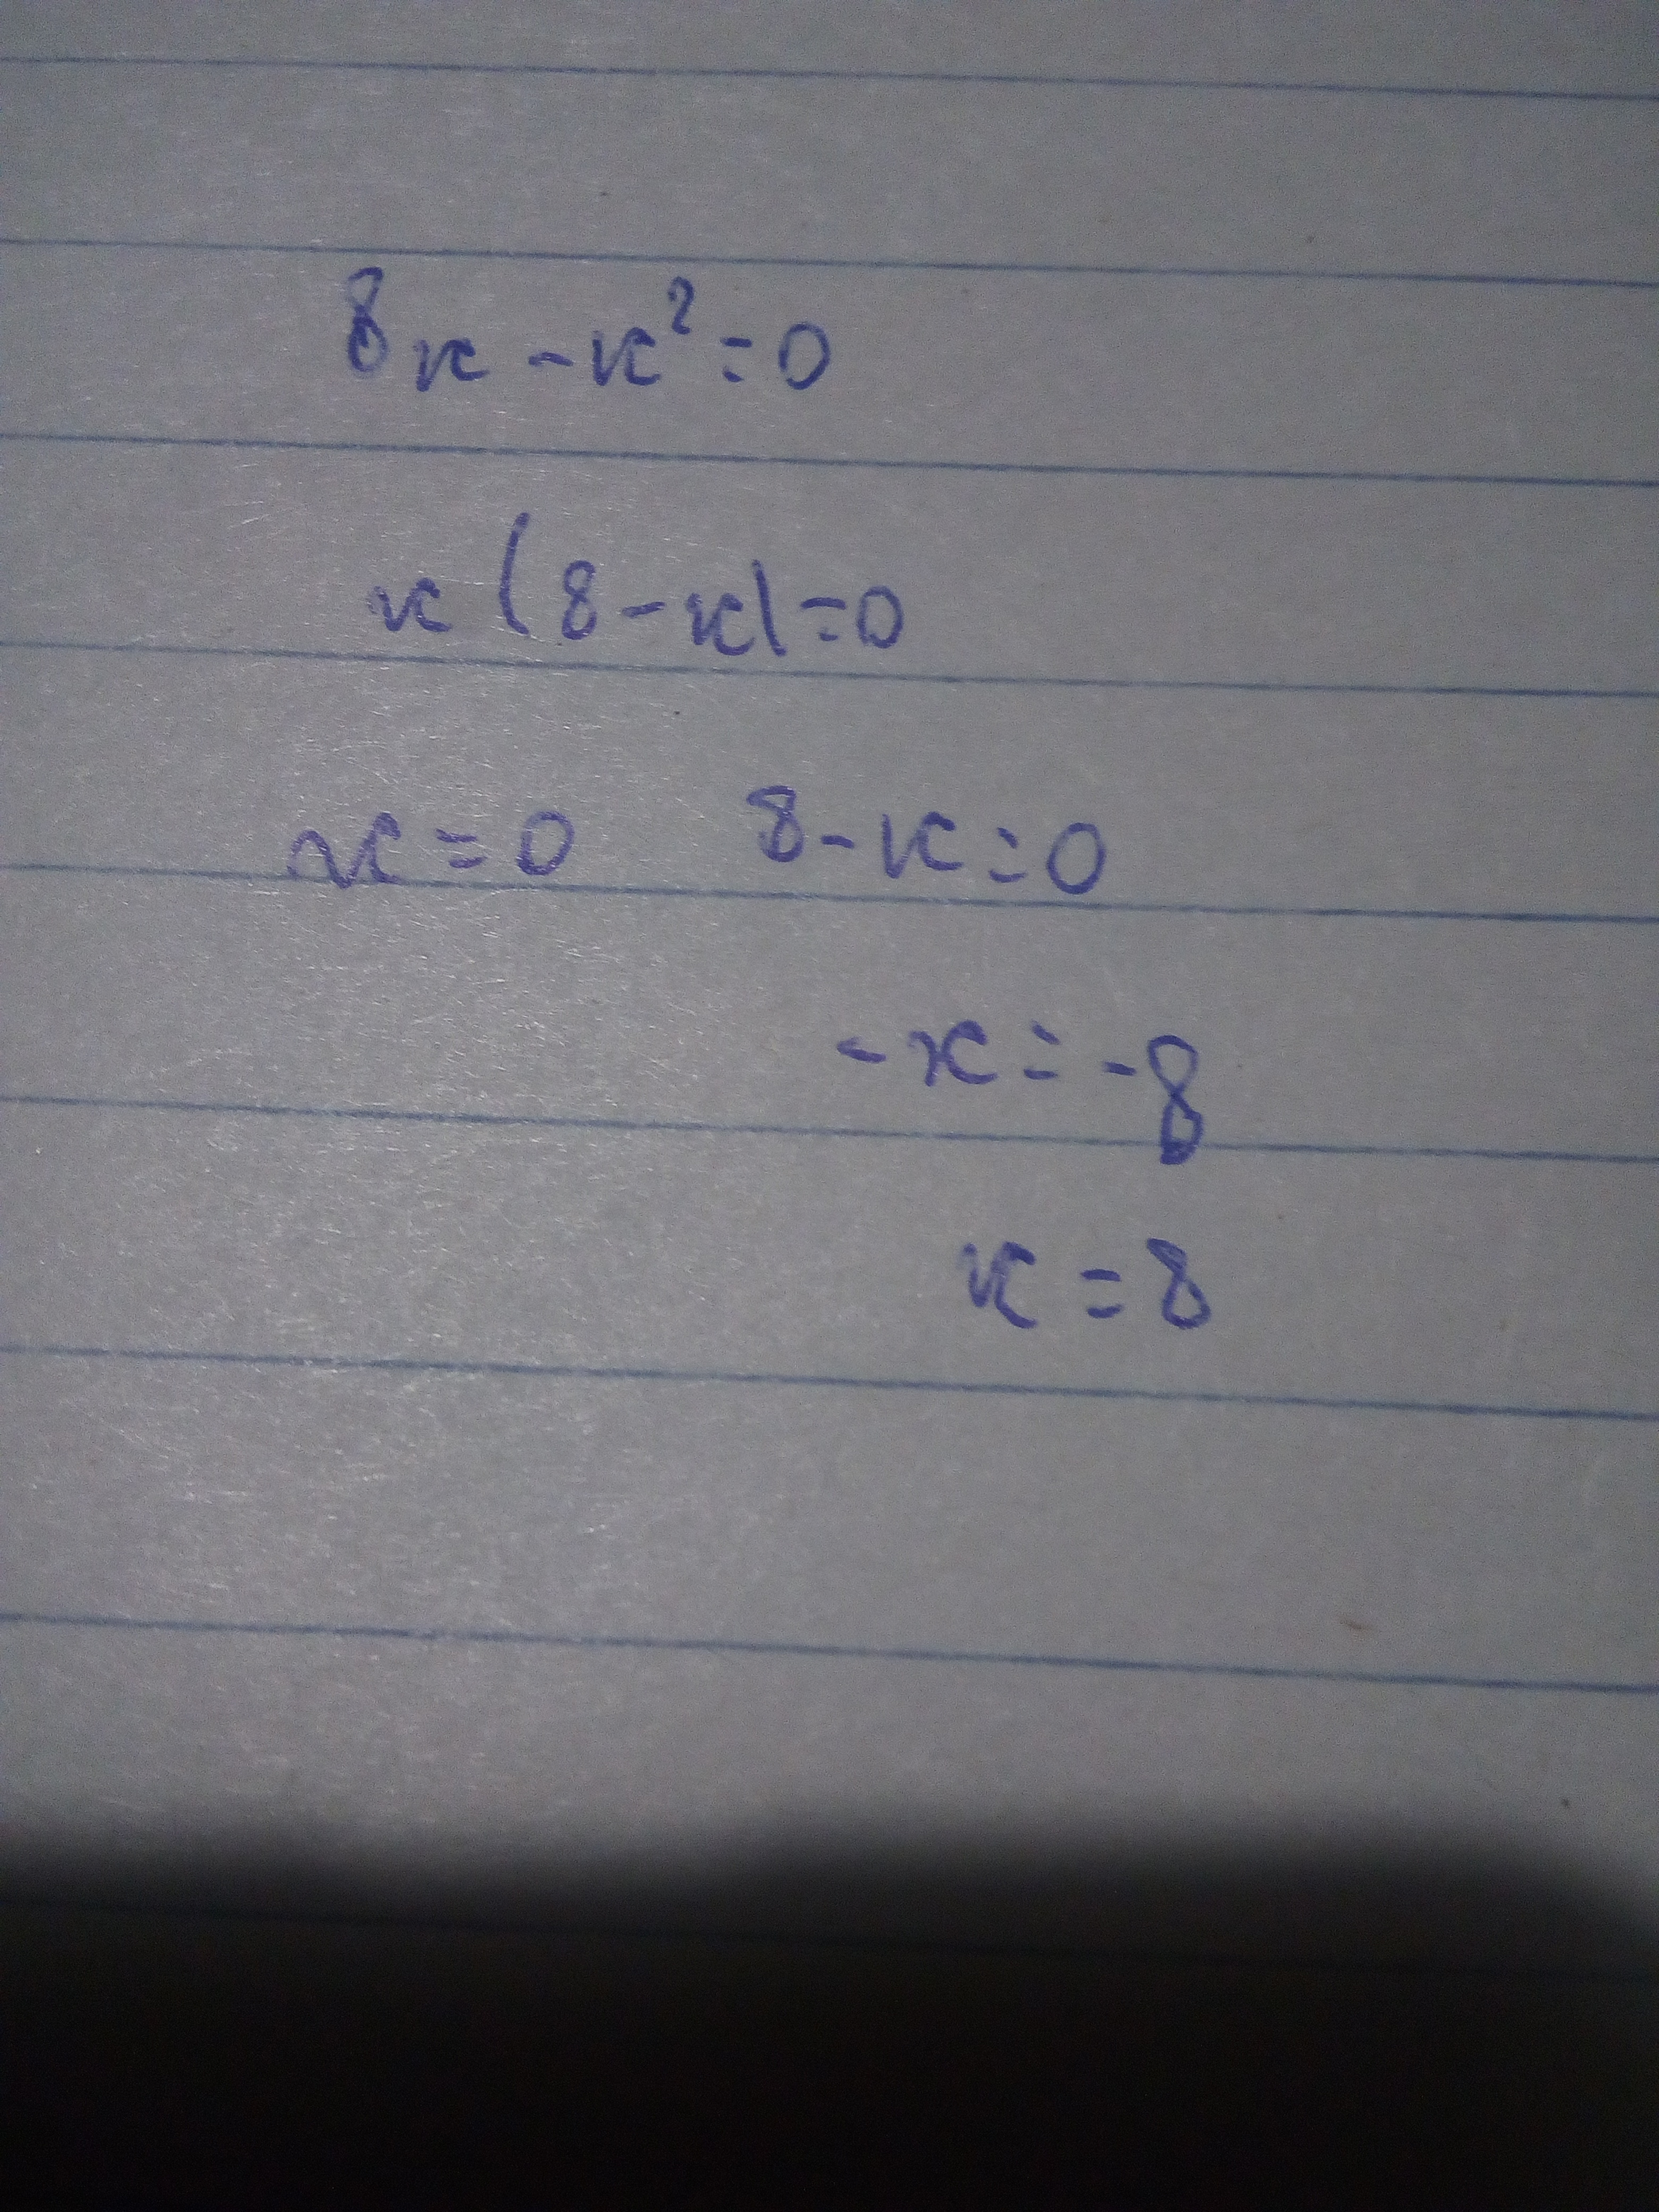 8x - x² = 0
x (8 - x) = 0
x = 0 8 - x = 0
- x = - 8
x = 8